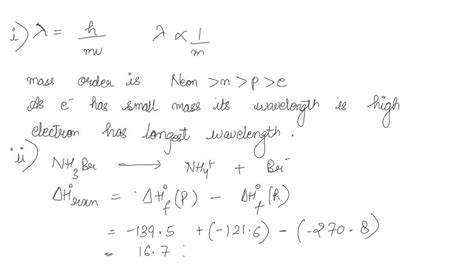 i) λ = h/mv λ ∝ 1/m
mass order is Neon > n > p > e
As e⁻ has small mass its wavelength is high
electron has longest wavelength.
ii) NH₃Br ⟷ NH₄⁺ + Br⁻
ΔH°rxn = ΔH°f(P) - ΔH°f(R)
= -139.5 + (-121.6) - (-270.8)
= 16.7 :